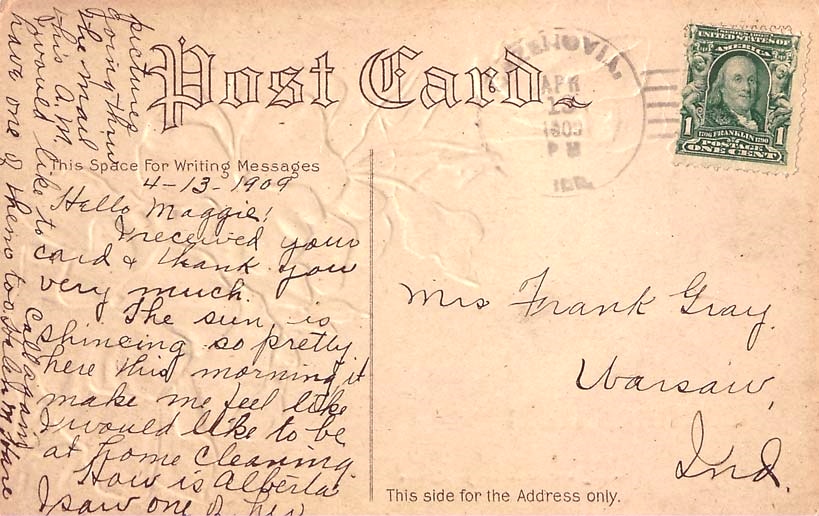 Post Card
This Space For Writing Messages
4-13-1909
Hello Maggie!
I received your
card & thank you
very much.
The sun is
shineing so pretty
here this morning it
make me feel like
I would like to be
at home cleaning
How is Alberta
I saw one of her
pictures
going thru
the mail
this A.M.
I would like to
have one of them too
Call again
Mrs Frank Gray.
Warsaw,
Ind.
This side for the Address only.
APR
1909
PM
ILL.
UNITED STATES OF
AMERICA
1706 FRANKLIN 1790
1 1
POSTAGE
ONE CENT